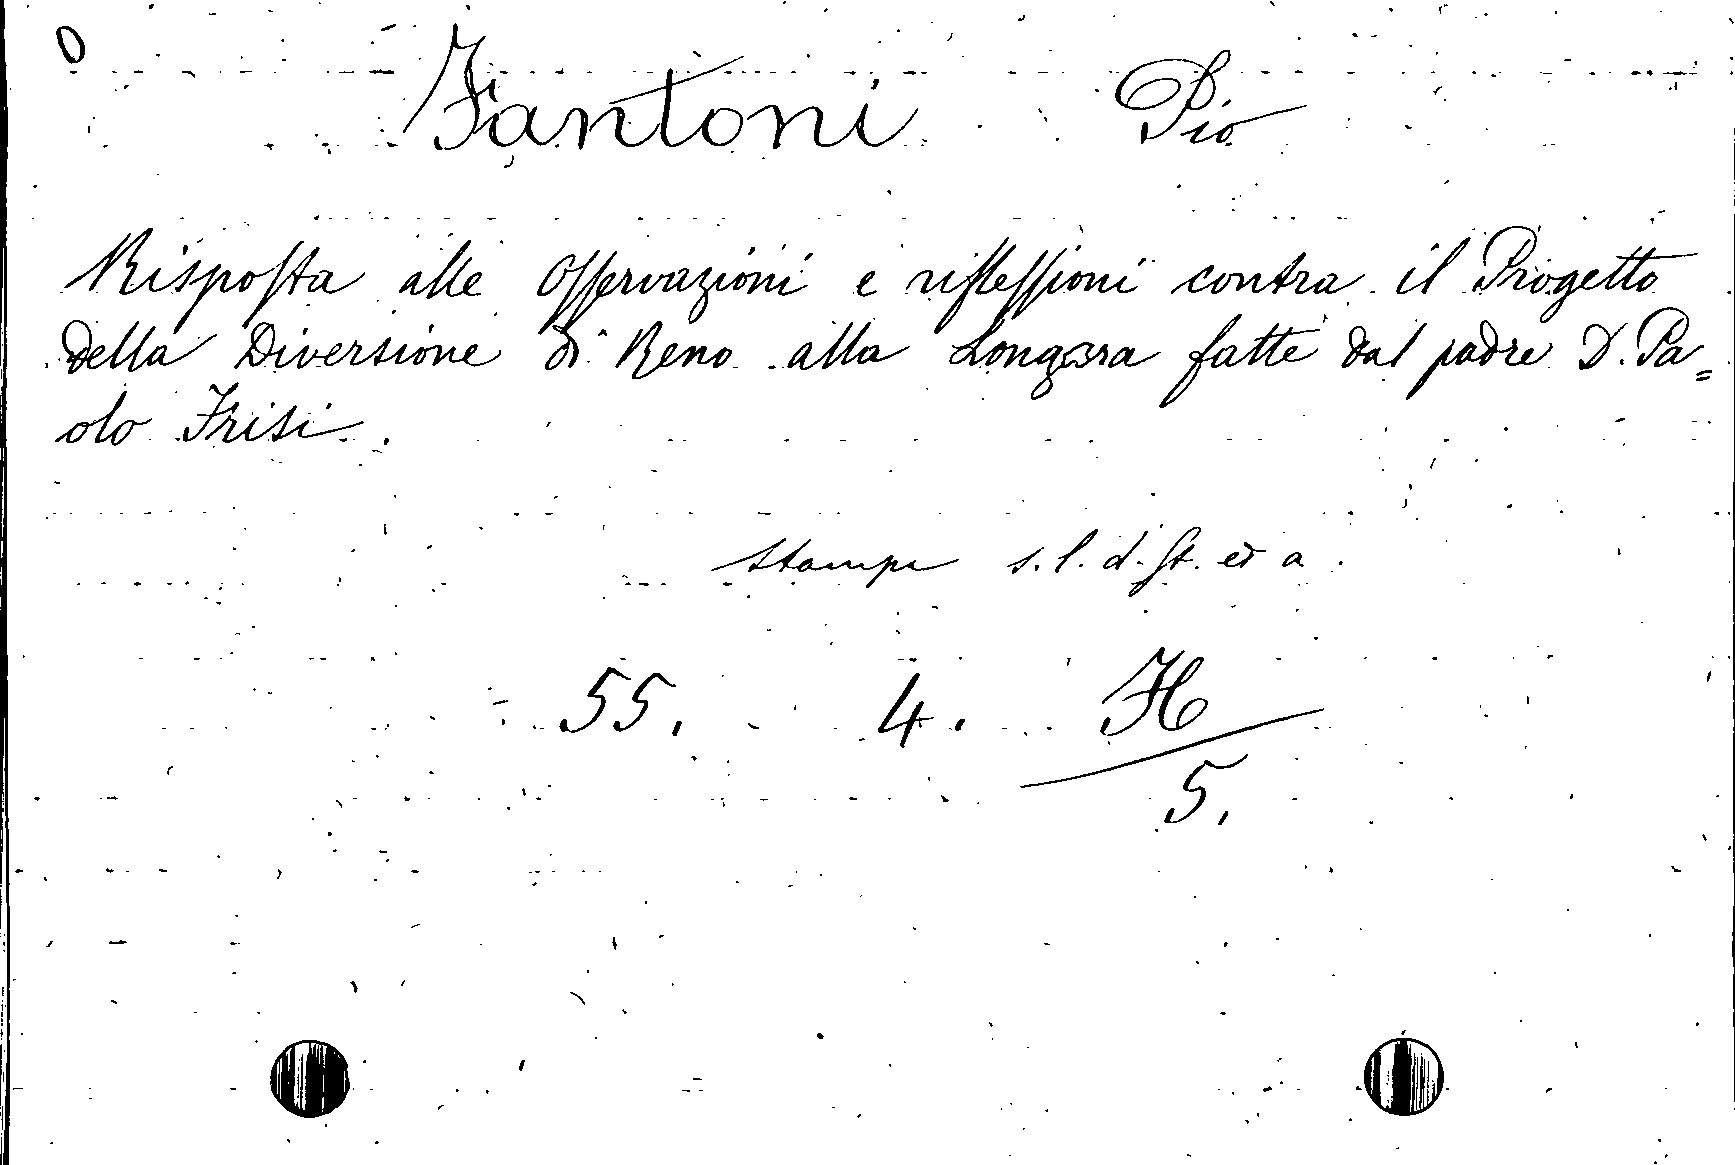 0
Fantoni Pio
Risposta alle Osservazioni e riflessioni contra il Progetto
della Diversione di Reno alla Longara fatte dal padre D. Pa=
olo Frisi.
Stampe s. l. d. St. ed a.
55. 4. H
5.